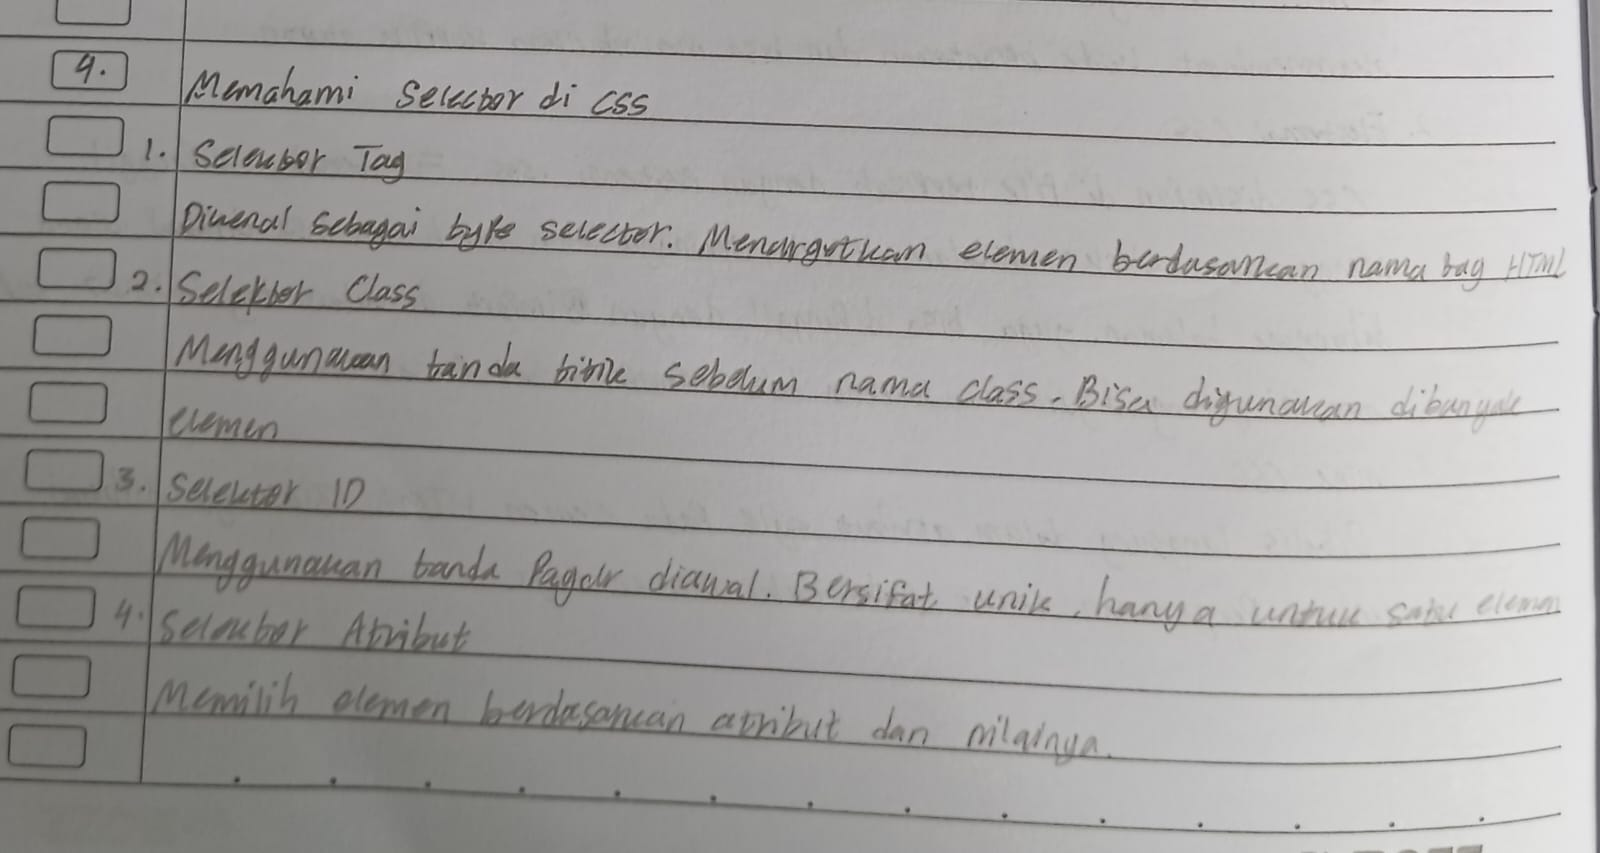 4.
Memahami Selector di CSS
1. Selektor Tag
Dikenal sebagai type selector. Menargetkan elemen berdasarkan nama tag HTML
2. Selektor Class
Menggunakan tanda titik sebelum nama class. Bisa digunakan dibanyak
elemen
3. Selektor ID
Menggunakan tanda Pagar diawal. Bersifat unik, hanya untuk satu elemen
4. Selektor Atribut
Memilih elemen berdasarkan atribut dan nilainya.